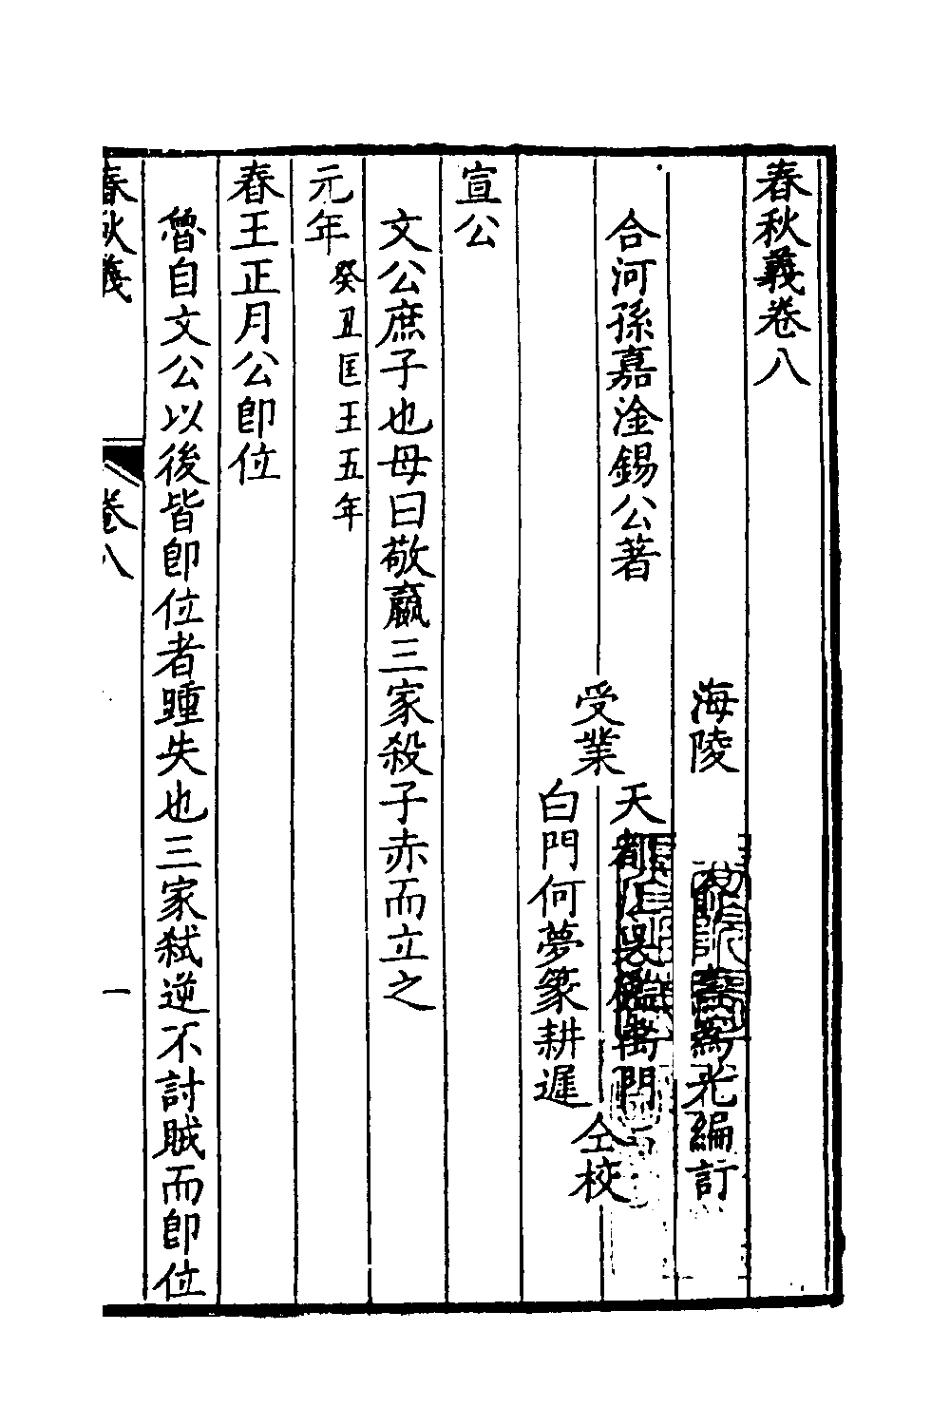 春秋義卷八
海陵
光編訂
合河孫嘉淦錫公著
受業
天都
白門何夢篆耕遲
仝校
宣公
文公庶子也母曰敬嬴三家殺子赤而立之
元年癸丑匡王五年
春王正月公卽位
魯自文公以後皆卽位者踵失也三家弑逆不討賊而卽位
春秋義
卷八
一